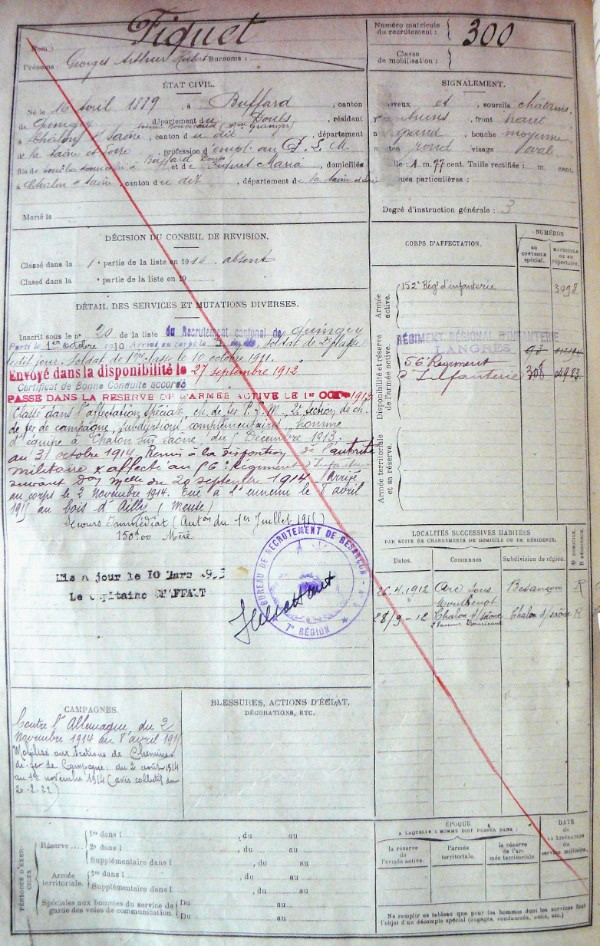 Fiquet
Nom :
Prénoms : Georges Arthur Surnoms :
Numéro matricule du recrutement : 300
Classe de mobilisation :
ÉTAT CIVIL.
Né le avril 1889, à Buffard, canton
de Quingey, département du Doubs, résident
à Châlon s/ Saône, canton du dit, département
de la Saône et Loire, profession d'empl. au P. L. M.
fils de et de Maria, domiciliés
à Chalon s/ Saône, canton du dit, département de la Saône et Loire
Marié le
SIGNALEMENT.
Cheveux et sourcils châtains
front
bouche moyenne
rond visage oval
Taille : 1 m. 77 cent. Taille rectifiée : m. cent.
Marques particulières :
Degré d'instruction générale : 3
DÉCISION DU CONSEIL DE RÉVISION.
Classé dans la 1e partie de la liste en 1910 absent
Classé dans la partie de la liste en 19
DÉTAIL DES SERVICES ET MUTATIONS DIVERSES.
Inscrit sous le n° 20 de la liste du Recrutement cantonal de Quingey
octobre 1910 Arrivé au corps le dit jour, Soldat de 2e classe
ledit jour. Soldat de 1ère classe le 10 octobre 1911.
Envoyé dans la disponibilité le 27 septembre 1912
Certificat de Bonne Conduite accordé
PASSÉ DANS LA RÉSERVE DE L'ARMÉE ACTIVE LE 1er OCT 1913
Classé dans l'affectation spéciale, ch. de fer P.L.M. Section de ch.
de fer de campagne, subdivision complémentaire, homme
d'équipe à Chalon sur Saône, du 5 Décembre 1913
au 31 octobre 1914. Remis à la disposition de l'autorité
militaire & affecté au 56e Régiment d'Infanterie
suivant du 20 septembre 1914. Arrivé
au corps le 2 novembre 1914. Tué à l'ennemi le 8 avril
1915 au bois d'Ailly (Meuse)
Secours Immédiat (Auton du 1er Juillet 1915)
150f00 Mère.
Mis à jour le 10 Mars
Le Capitaine
BUREAU DE RECRUTEMENT DE BESANÇON
7e RÉGION
CORPS D'AFFECTATION.
NUMÉROS
au contrôle spécial.
matricule ou au répertoire.
Armée active.
152e Régt d'infanterie 3098
Disponibilité et réserve de l'armée active.
RÉGIMENT RÉGIONAL D'INFANTERIE
LANGRES
56e Régiment
d'Infanterie
Armée territoriale et sa réserve.
LOCALITÉS SUCCESSIVES HABITÉES
PAR SUITE DE CHANGEMENTS DE DOMICILE OU DE RÉSIDENCE.
Dates. Communes Subdivision de région.
26.4.1912 Arc sous Montenot Besançon R
28/9-12 Chalon s/Saône Chalon s/Saône R
CAMPAGNES.
Contre l'Allemagne du 2
Novembre 1914 au 8 avril 1915
Mobilisé aux Sections de Chemins
de fer de Campagne : du 2 août 1914
au 1er novembre 1914 (avis collectif du
20-2-22)
BLESSURES, ACTIONS D'ÉCLAT,
DÉCORATIONS, ETC.
PÉRIODES D'EXERCICES
Réserve
1re dans l , du au
2e dans l , du au
Supplémentaire dans l , du au
Armée territoriale.
1re dans l , du au
Supplémentaire dans l , du au
Spéciales aux hommes du service de garde des voies de communication.
Du au
Du au
ÉPOQUE
À LAQUELLE L'HOMME DOIT PASSER DANS :
la réserve de l'armée active.
l'armée territoriale.
la réserve de l'armée territoriale.
DATE
DE LA LIBÉRATION DU SERVICE MILITAIRE.
Ne remplir ce tableau que pour les hommes dont les services font
l'objet d'un décompte spécial (engagés, condamnés, omis, etc.).